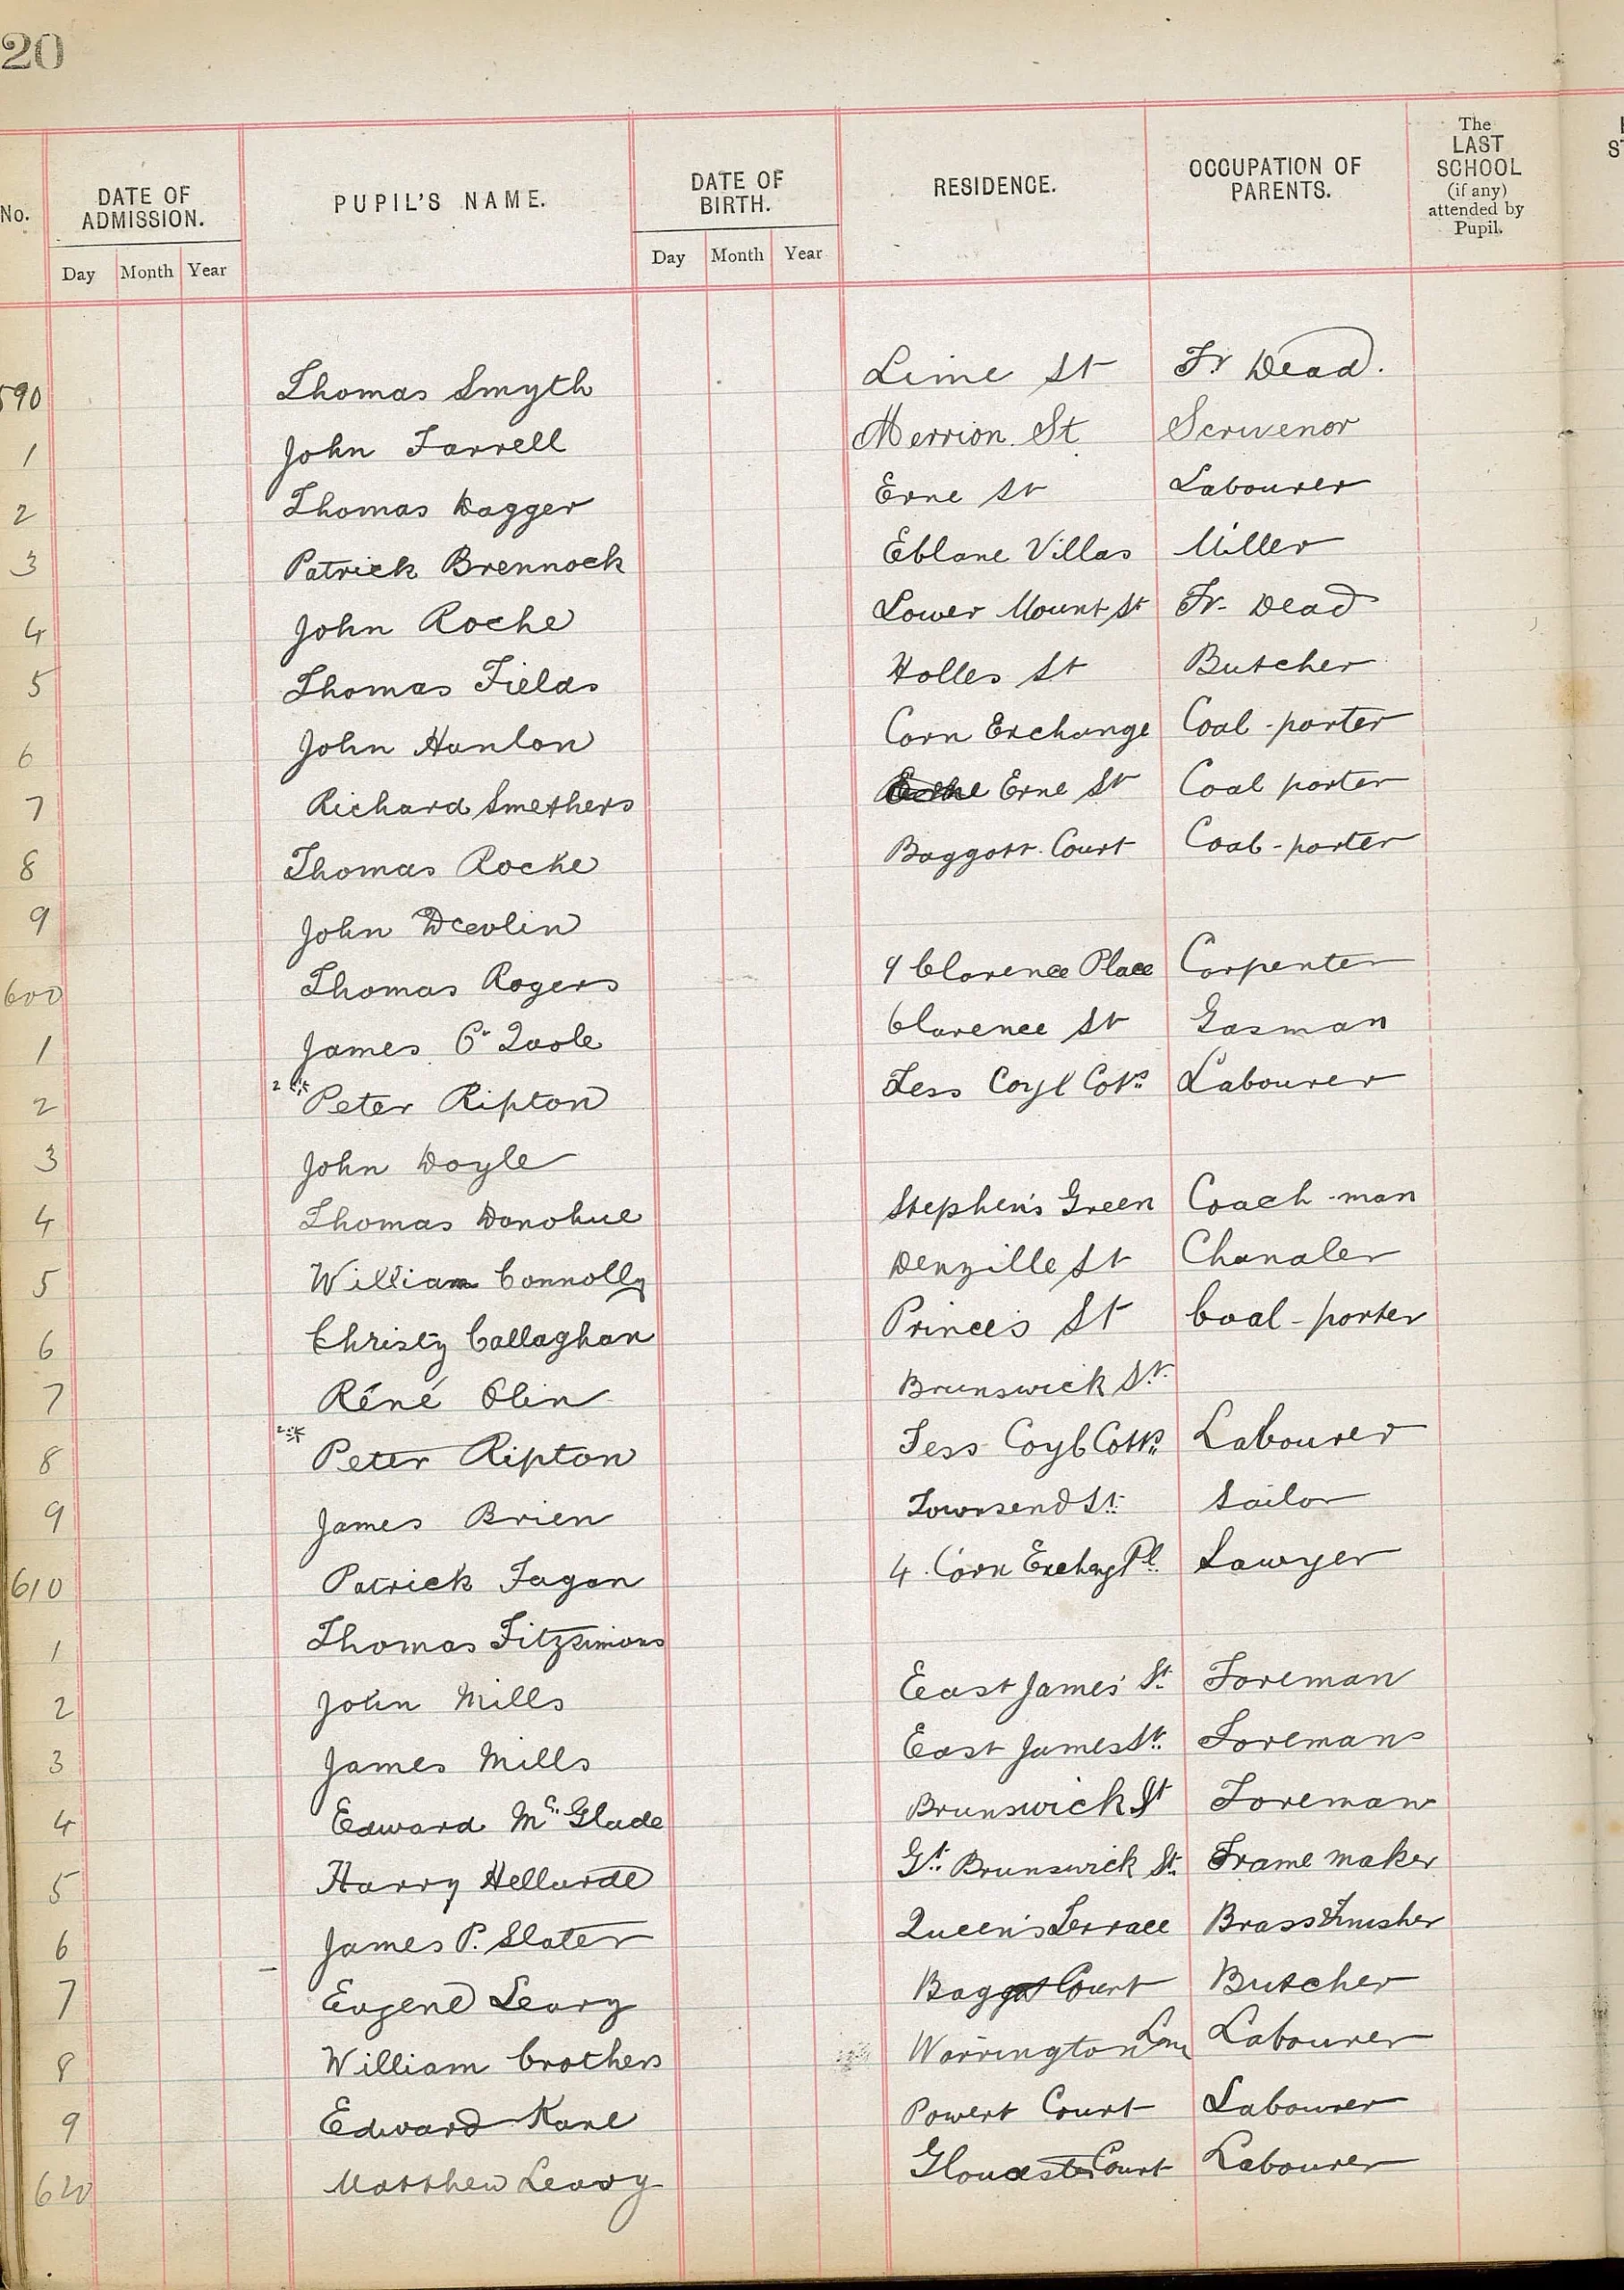 20
No. DATE OF ADMISSION. PUPIL'S NAME. DATE OF BIRTH. RESIDENCE. OCCUPATION OF PARENTS. The LAST SCHOOL (if any) attended by Pupil.
Day Month Year Day Month Year
590 Thomas Smyth Lime St Fr Dead.
1 John Farrell Merrion St Scrivenor
2 Thomas Dagger Erne St Labourer
3 Patrick Brennock Eblane Villas Miller
4 John Roche Lower Mount St Fr. Dead
5 Thomas Fields Holles St Butcher
6 John Hanlon Corn Exchange Coal-porter
7 Richard Smethers Erne St Coal porter
8 Thomas Roche Baggott Court Coal-porter
9 John Devlin
600 Thomas Rogers 9 Clarence Place Carpenter
1 James O'Toole Clarence St Gasman
2 2* Peter Ripton Labourer
3 John Doyle
4 Thomas Donohue Stephen's Green Coach-man
5 William Connolly Denzille St Chandler
6 Christy Callaghan Prince's St Coal-porter
7 Réné Olin Brunswick St.
8 2* Peter Ripton Labourer
9 James Brien Townsend St. Sailor
610 Patrick Fagan 4 Corn Exchag Pl. Sawyer
1 Thomas Fitzsimons
2 John Mills East James' St. Foreman
3 James Mills East James St. Foreman
4 Edward McGlade Brunswick St Foreman
5 Harry Hellarde Gt. Brunswick St. Frame maker
6 James P. Slater Queen's Terrace Brass Finisher
7 Eugene Leary Baggot Court Butcher
8 William Crothers Warrington Lane Labourer
9 Edward Kane Powers Court Labourer
620 Matthew Leary Gloucester Court Labourer